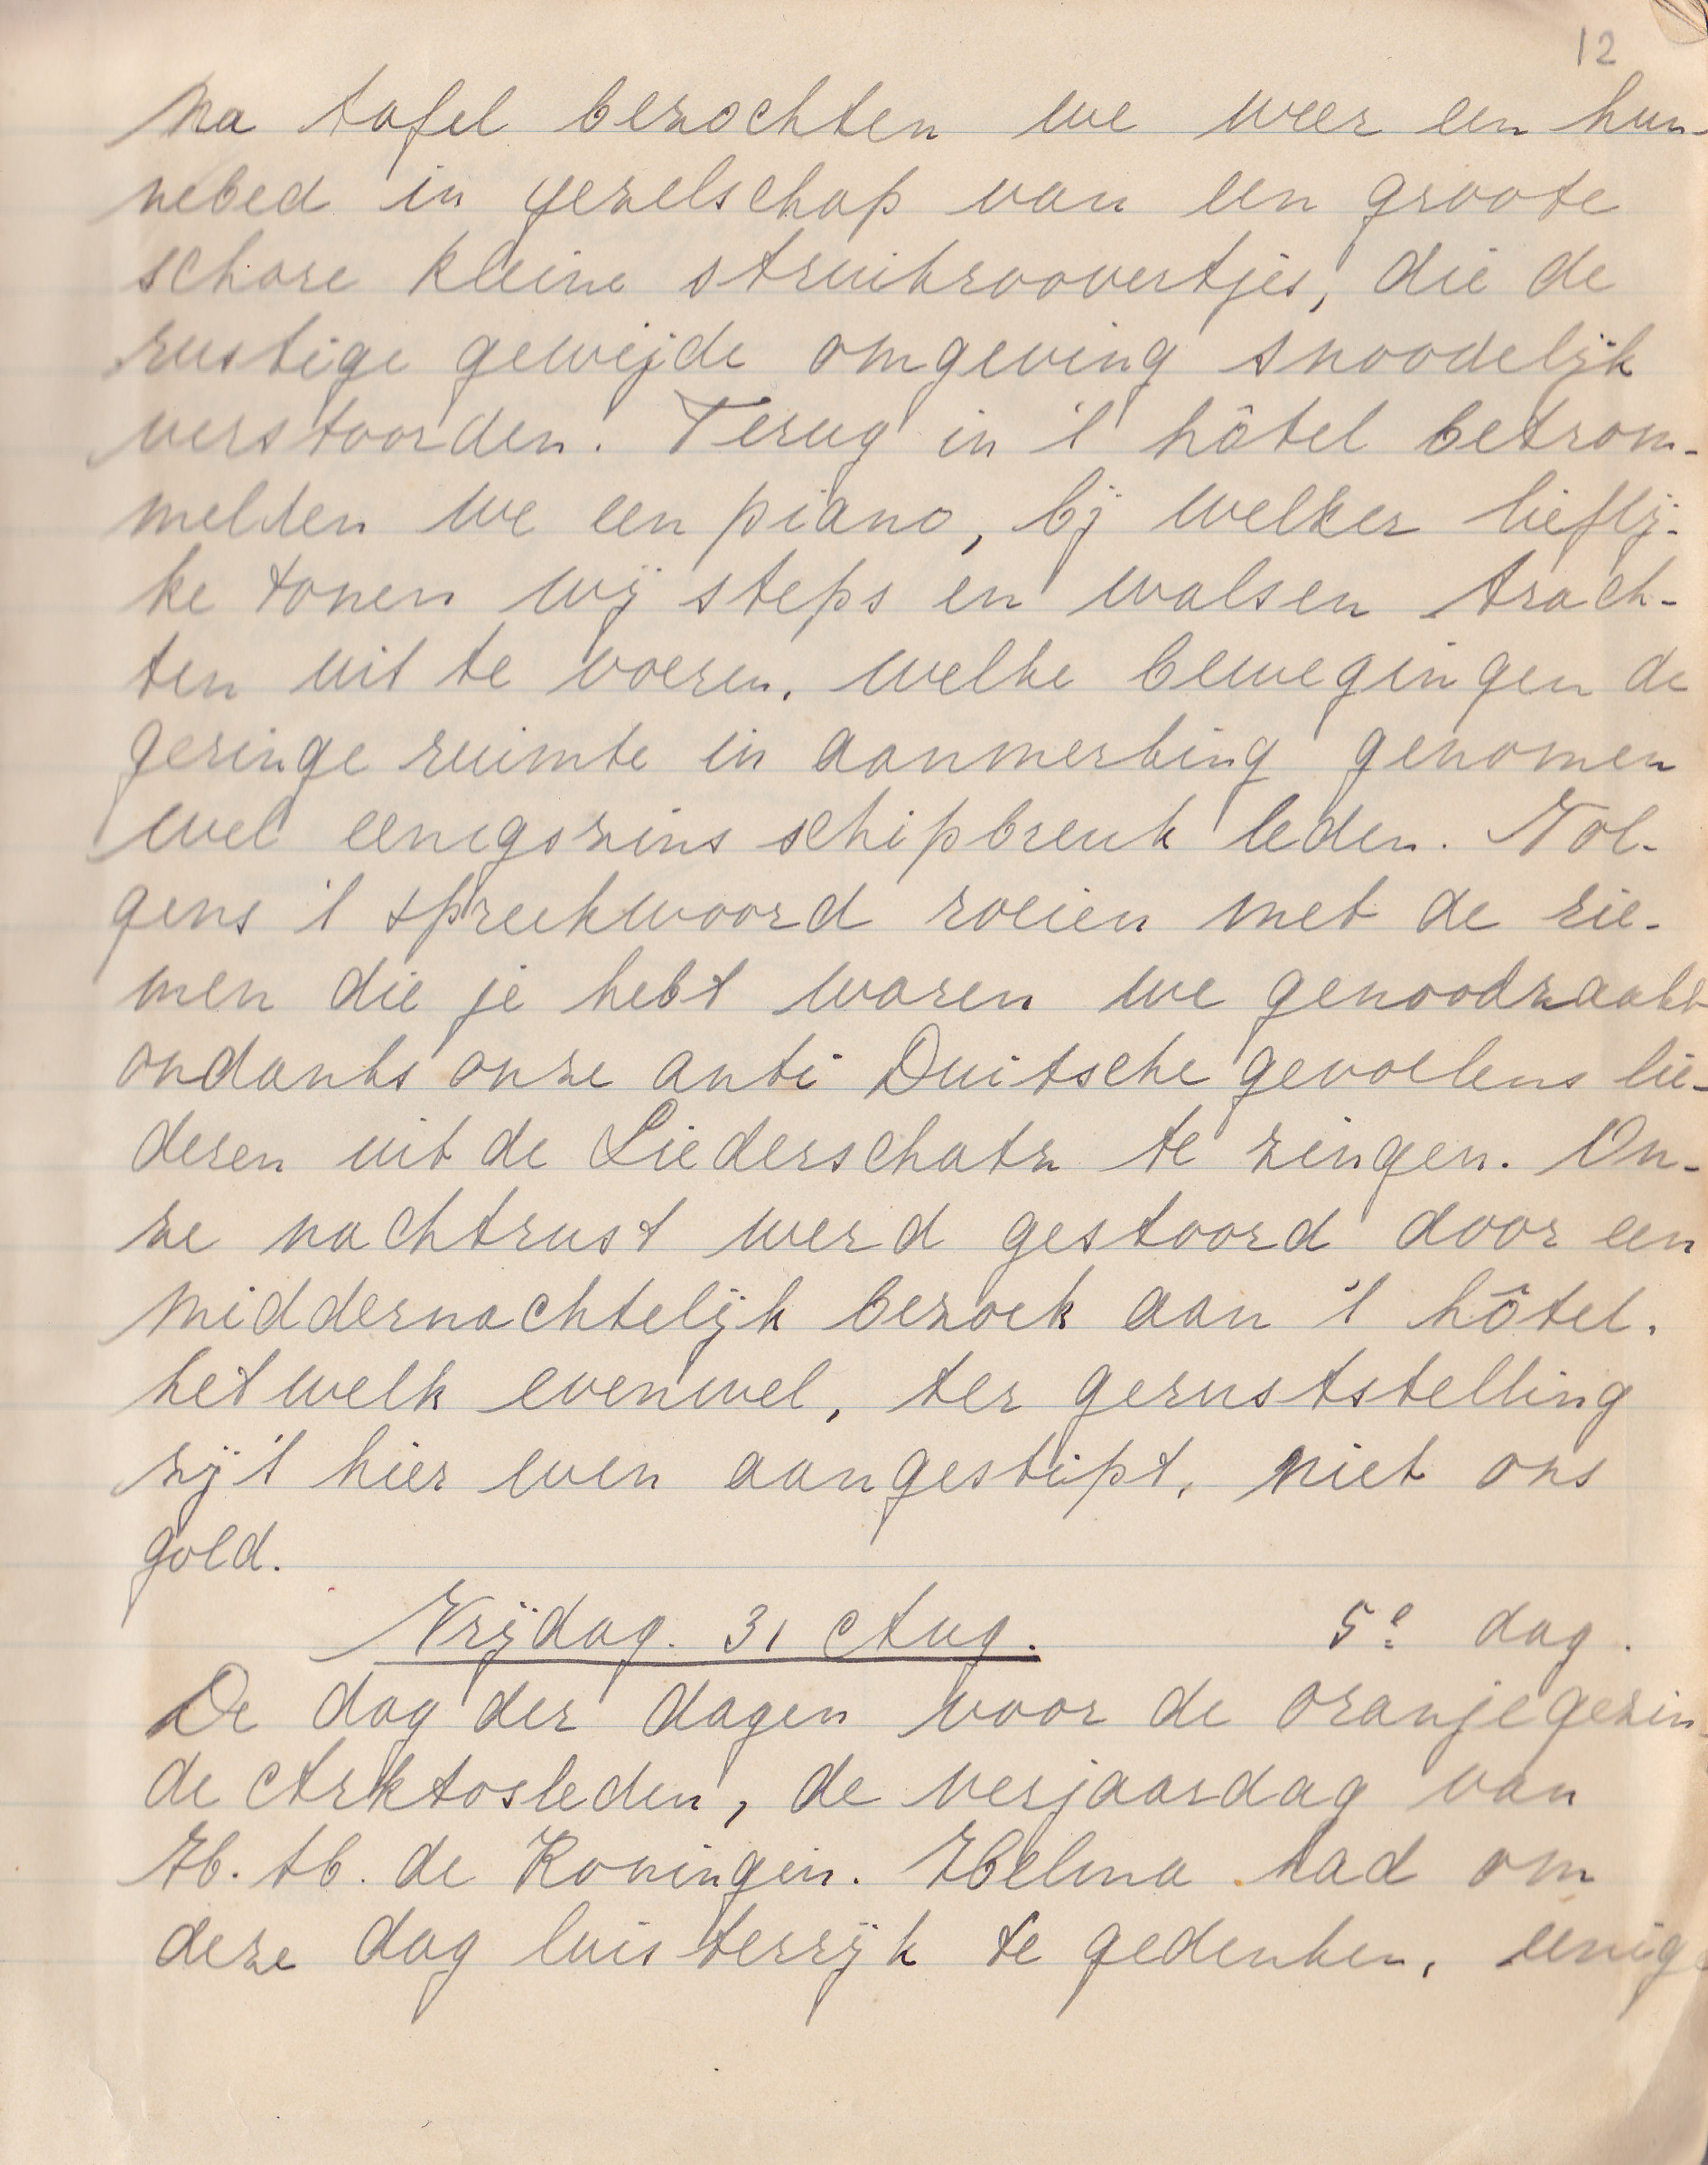 12
Na tafel bezochten we weer een hun-
nebed in gezelschap van een groote
schare kleine struikroovertjes, die de
rustige gewijde omgeving snoodelijk
verstoorden. Terug in 't hôtel betrom-
melden we een piano, bij welker liefly-
ke tonen wij steps en walsen trach-
ten uit te voeren, welke bewegingen de
geringe ruimte in aanmerking genomen
wel eenigszins schipbreuk leden. Vol-
gens 't spreekwoord roeien met de rie-
men die je hebt waren we genoodzaakt
ondanks onze anti Duitsche gevoelens lie-
deren uit de Liederschatz te zingen. On-
ze nachtrust werd gestoord door een
middernachtelijk bezoek aan 't hôtel,
hetwelk evenwel, ter geruststelling
zij 't hier even aangestipt, niet ons
gold.
Vrijdag. 31 Aug. 5e dag.
De dag der dagen voor de oranjegezin-
de Arktosleden, de verjaardag van
H. M. de Koningin. Helma had om
deze dag luisterrijk te gedenken, eenige